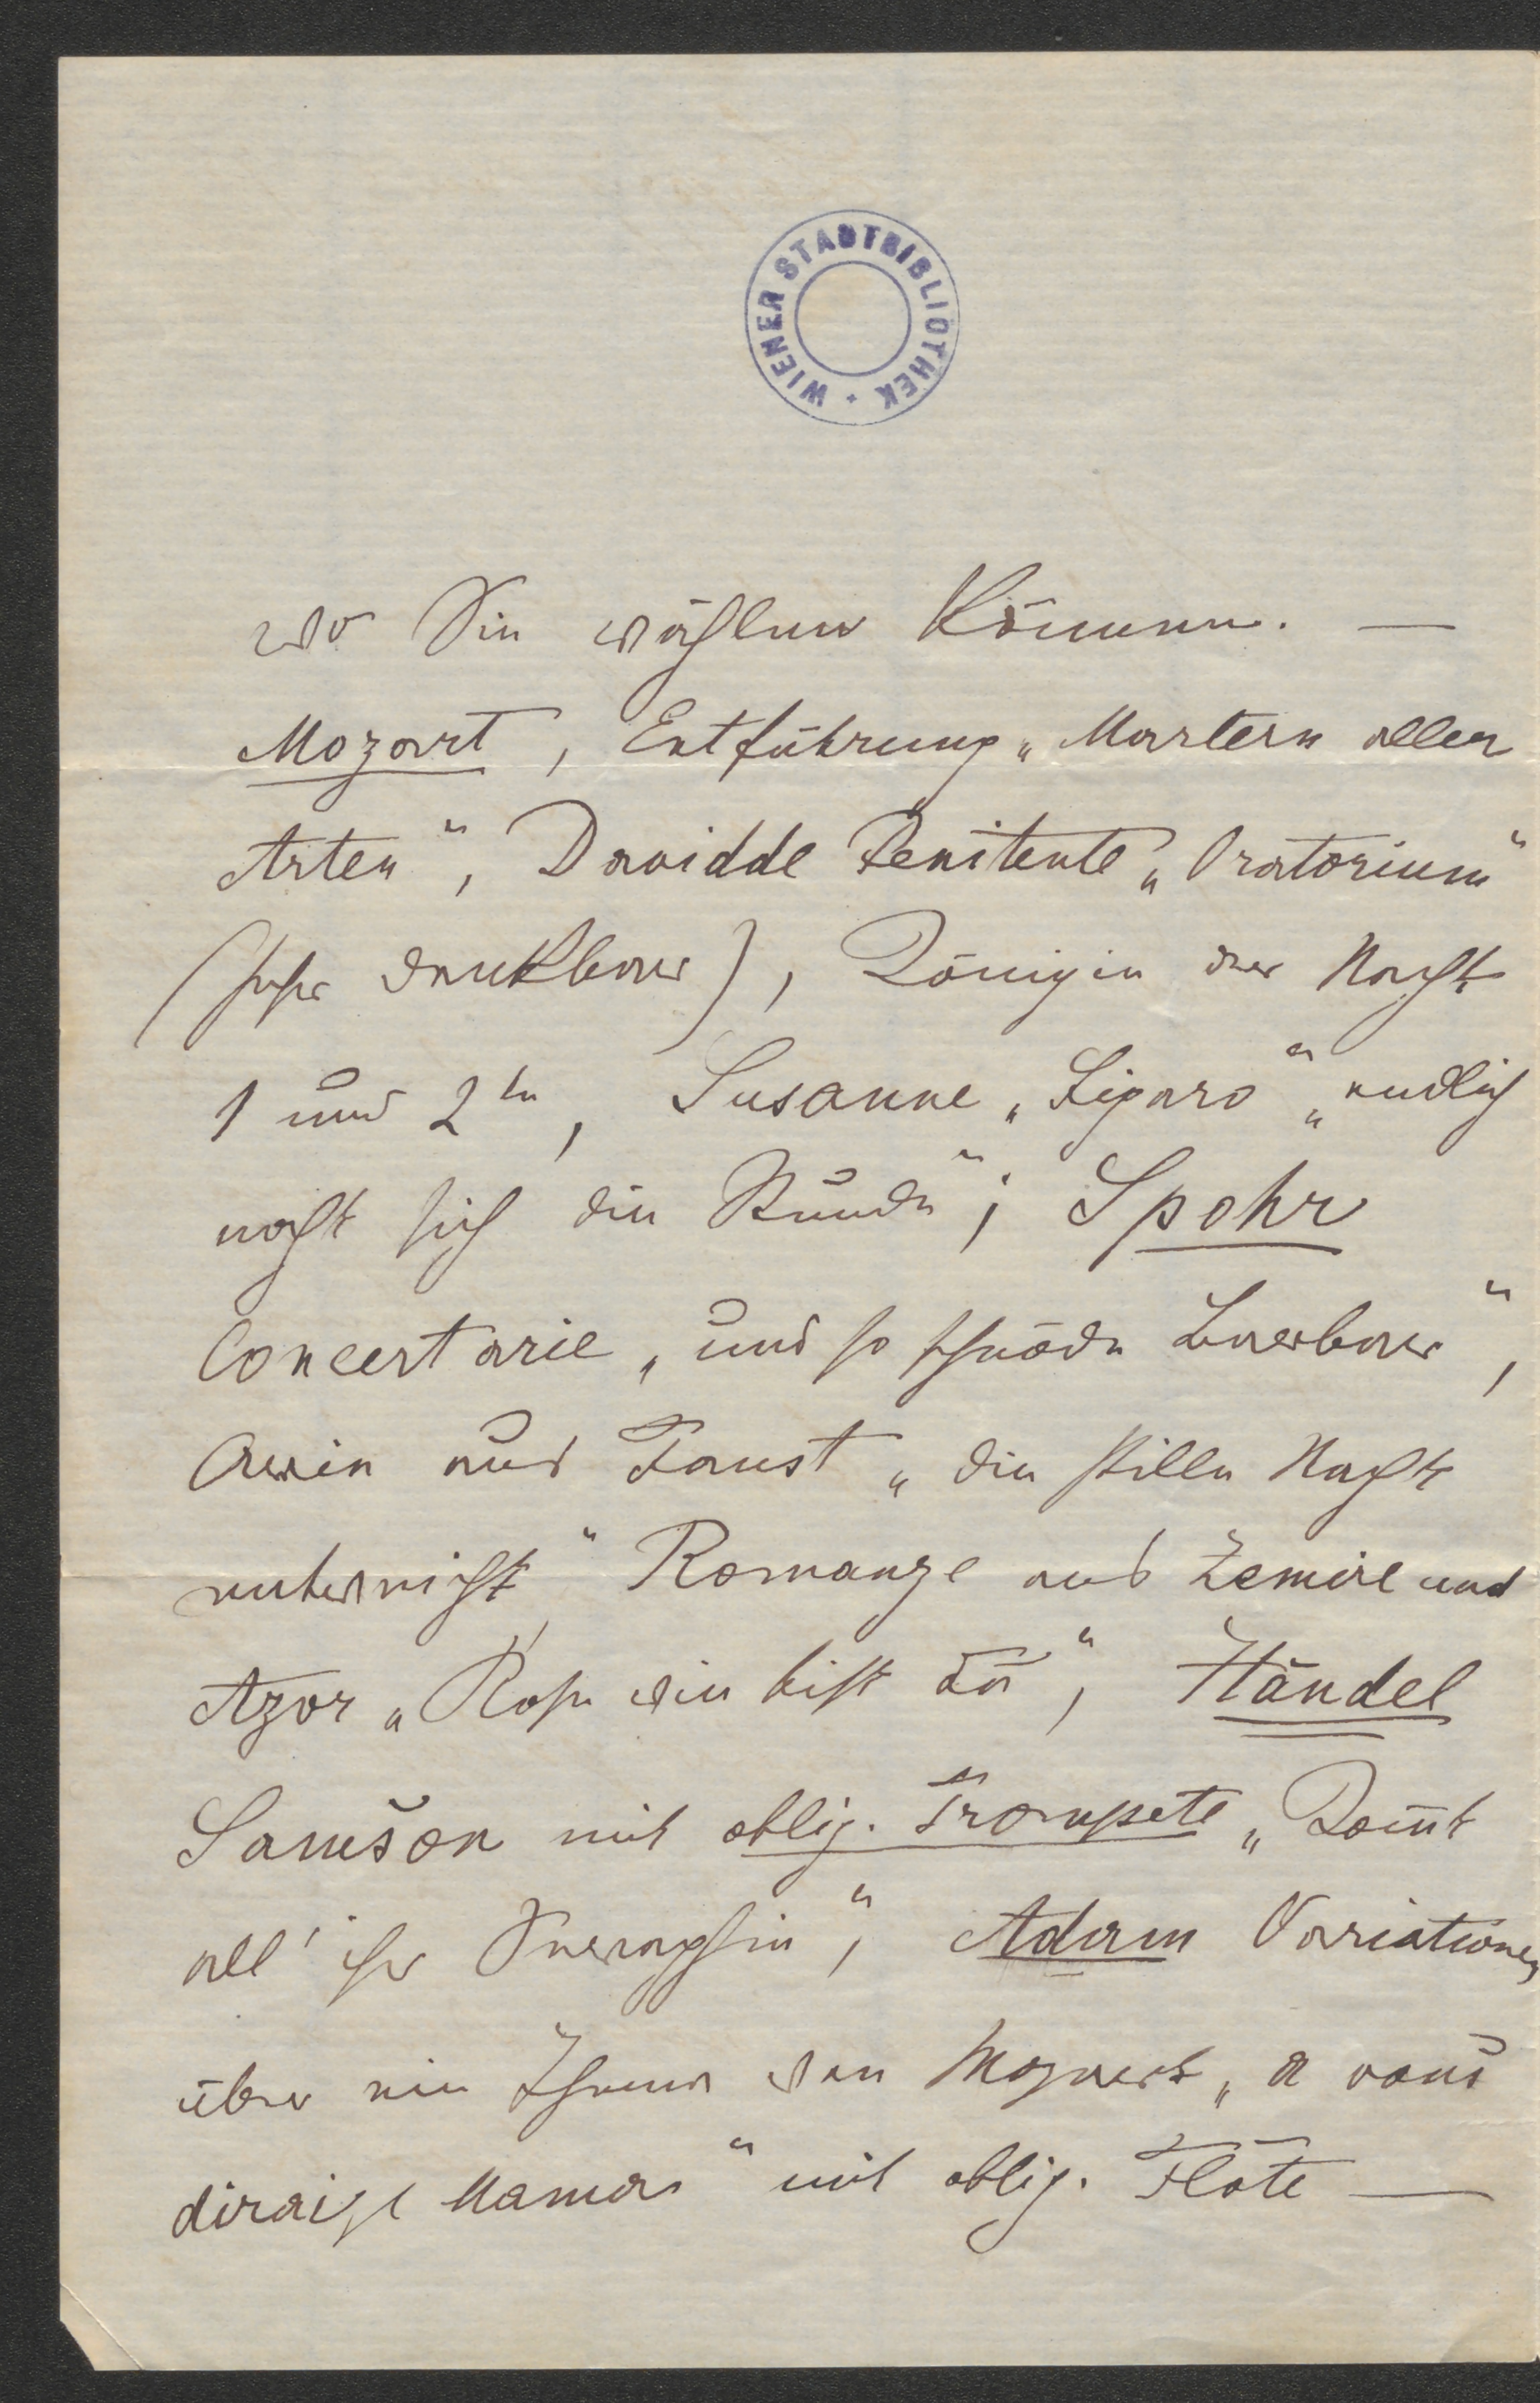 WIENER STADTBIBLIOTHEK
wo Sie wählen können. —
Mozart, Entführung „Martern aller
Arten“, Davidde Penitente „Oratorium“
(sehr dankbar), Königin der Nacht
1 und 2te, Susanne „Figaro“ „endlich
naht sich die Stunde“; Spohr
Concertarie „und so schnöde Barbar“,
Arie aus Faust „die stille Nacht
entweicht“, Romanze aus Zemire und
Azor „Rose wie bist du“, Händel
Samson mit oblig. Trompete „Kommt
all' ihr Seraphin“, Adam Variationen
über ein Thema von Mozart „a vous
diraije Maman“ mit oblig. Flöte —